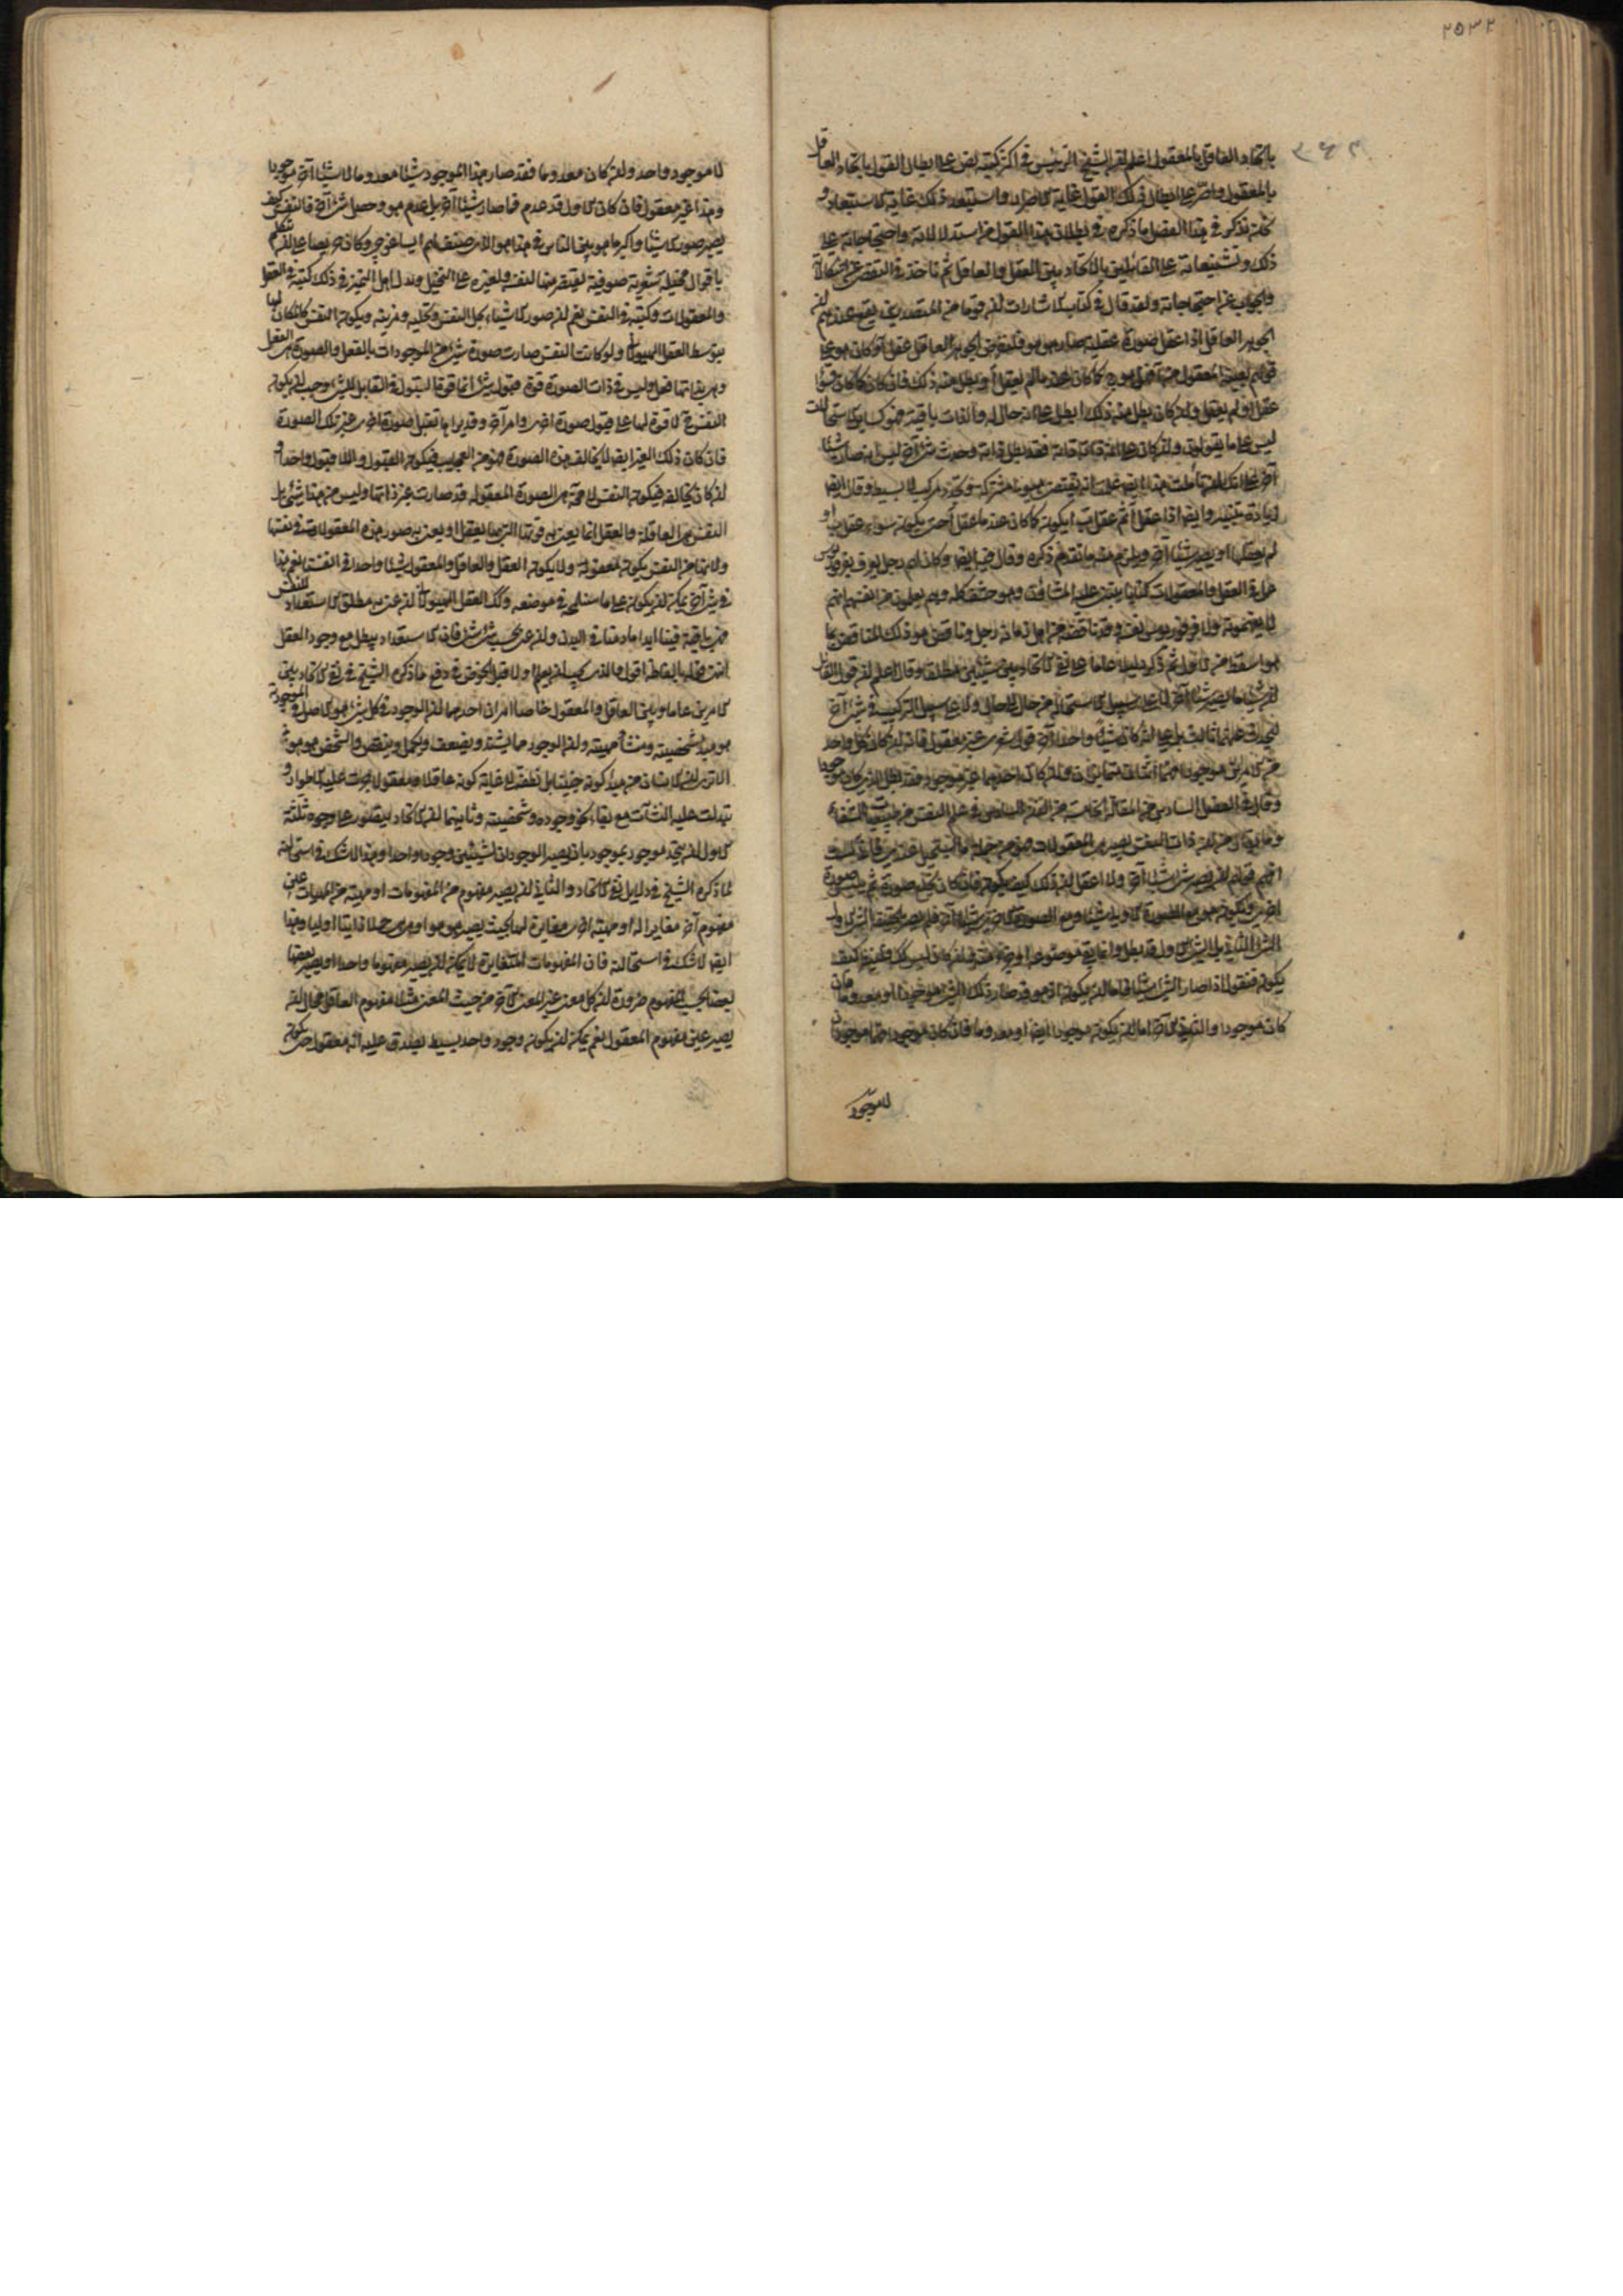 باتحاد العاقل بالمعقول اعلم ان الشيخ الرئيس في اكثر كتبه نص علي ابطال القول باتحاد العاقل
بالمعقول واصر علي ابطال ذلك القول غاية الاصرار واستبعد ذلك غاية الاستبعاد و
نذكر في هذا الفصل ما ذكره في بطلان هذا القول من استدلالاته واحتجاجاته علي
ذلك وتشنيعاته علي القائلين بالاتحاد بين العقل والعاقل ثم ناخذ في التفصي عن اشكالاته
والجواب عن احتجاجاته ولقد قال في كتاب الاشارات ان قوما من المتصدرين يقع عندهم ان
الجوهر العاقل اذا عقل صورة عقلية صار هو هو فلنفرض الجوهر العاقل عقل آ وكان هو علي
قولهم بعينه المعقول من آ فهل هو ح كما كان عند ما لم يعقل آ او بطل منه ذلك فان كان كما كان فسواء
عقل آ او لم يعقل وان كان بطل منه ذلك ابطل علي انه حال له والذات باقية فهو كساير الاستحالات
ليس علي ما يقولون وان كان علي انه ذاته فقد بطل ذاته وحدث شئ آخر ليس انه صار شيئا
آخر علي انك ان تاملت هذا ايضا علمت انه يقتضي هيولي مشتركة وتجدد مركب لا بسيط وقال ايضا
زيادة تنبيه وايضا اذا عقل آ ثم عقل ب ايكون كما كان عند ما عقل آ حتي يكون سواء عقل ب او
لم يعقلها او يصير شيئا آخر ويلزم منه ما تقدم ذكره وقال فيه ايضا وكان لهم رجل يعرف بفرفوريوس
عمل في العقل والمعقولات كتابا يثني عليه المشاؤن وهو حشف كله وهم يعلمون من انفسهم انهم
لا يفهمونه ولا فرفوريوس نفسه وقد ناقضه من اهل زمانه رجل وناقض هو ذلك المناقض بما
هو اسقط من الاول ثم ذكر دليلا عاما علي نفي الاتحاد بين شيئين مطلقا وقال اعلم ان قول القائل
ان شيئا ما يصير شيئا آخر لا علي سبيل الاستحالة من حال الي حال ولا علي سبيل التركيب مع شئ آخر
ليحدث عنهما ثالث بل علي انه كان شيئا واحدا آخر قول شعري غير معقول فانه ان كان كل واحد
من الامرين موجودا فهما اثنان متمايزان وان كان احدهما غير موجود فقد بطل الذي كان موجودا
وقال في الفصل السادس من المقالة الخامسة من الفن السادس في علم النفس من طبيعيات الشفاء
وما يقال من ان ذات النفس يصير هي المعقولات فهو من جملة ما يستحيل عندي فاني لست
افهم قولهم ان يصير شئ شيئا آخر ولا اعقل ان ذلك كيف يكون فان كان بان يخلع صورة ثم يلبس صورة
اخري ويكون هو مع الصورة الاولي شيئا ومع الصورة الاخري شيئا آخر فلم يصر بالحقيقة الشئ الاول
الشئ الثاني بل الشئ الاول قد بطل وانما بقي موضوعه او جزء منه وان كان ليس كك فلينظر كيف
يكون فنقول اذا صار الشئ شيئا فاما ان يكون اذ هو قد صار ذلك الشئ موجودا او معدوما فان
كان موجودا والثاني الآخر اما ان يكون موجودا ايضا او معدوما فان كان موجودا فهما موجودان
لا موجود
لا موجود واحد وان كان معدوما فقد صار هذا الموجود شيئا معدوما لا شيئا آخر موجودا
وهذا غير معقول فان كان الاول قد عدم فما صار شيئا آخر بل عدم هو وحصل شئ آخر فالنفس كيف
يصير صور الاشياء واكثر ما هوس الناس في هذا هو الذي صنف لهم ايساغوجي وكان حريصا علي ان يتكلم
باقوال مخيلة شعرية صوفية يقتصر منها لنفسه ولغيره علي التخيل ويدل اهل التميز في ذلك كتبه في العقل
والمعقولات وكتبه في النفس نعم ان صور الاشياء يحل النفس وتحليه وتزينه ويكون النفس كالمكان لها
بتوسط العقل الهيولاني ولو كانت النفس صارت صورة شئ من الموجودات بالفعل والصورة هي الفعل
وهي بذاتها فعل وليس في ذات الصورة قوة قبول شئ انما قوة القبول في القابل للشئ وجب ان يكون
النفس ح لا قوة لها علي قبول صورة اخري وامر آخر وقد نراها تقبل صورة اخري غير تلك الصورة
فان كان ذلك الغير ايضا لا يخالف هذه الصورة فهو من العجايب فيكون القبول واللا قبول واحدا و
ان كان يخالفه فيكون النفس لا محة هي الصورة المعقولة قد صارت غير ذاتها وليس من هذا شئ بل
النفس هي العاقلة والعقل انما يعني به قوتها التي بها يعقل او يعني به صور هذه المعقولات في نفسها
ولانها في النفس يكون معقولة ولا يكون العقل والعاقل والمعقول شيئا واحدا في انفسنا نعم هذا
في شئ آخر يمكن ان يكون علي ما سنلمحه في موضعه وكك العقل الهيولاني ان عني به مطلق الاستعداد للنفس
فهي باقية فينا ابدا ما دمنا في البدن وان عني بحسب شئ شئ فان الاستعداد يبطل مع وجود الفعل
انتهت كلماته بالفاظه اقول والذي يجب ان يعلم اولا قبل الخوض في دفع ما ذكره الشيخ في نفي الاتحاد بين
الامرين عاما وبين العاقل والمعقول خاصا امران احدهما ان الوجود في كل شئ هو الاصل في الموجودية
هو مبدء شخصيته ومنشأ مهيته وان الوجود مما يشتد ويضعف ويكمل وينقص والشخص هو هو
الا تري ان الانسان من مبدء كونه جنينا بل نطفة الي غاية كونه عاقلا ومعقولا جرت عليه الاطوار و
تبدلت عليه النشآت مع بقاء نحو وجوده وشخصيته وثانيهما ان الاتحاد يتصور علي وجوه ثلثة
الاول ان يتحد موجود بموجود بان يصير الوجودان لشيئين وجودا واحدا وهذا لا شك في استحالته
لما ذكره الشيخ في دلايل نفي الاتحاد والثاني ان يصير مفهوم من المفهومات او مهية من المهيات عين
مفهوم آخر مغاير له او مهية اخري مغايرة لها بحيث يصير هو هو او هي هي حملا ذاتيا اوليا وهذا
ايضا لا شك في استحالته فان المفهومات المتغايرة لا يمكن ان يصير مفهوما واحدا او يصير بعضها
بعضا بحسب المفهوم ضرورة ان كل معني غير المعني الآخر من حيث المعني مثلا مفهوم العاقل محال ان
يصير عين مفهوم المعقول نعم يمكن ان يكون وجود واحد بسيط يصدق عليه انه معقول حتي يكون